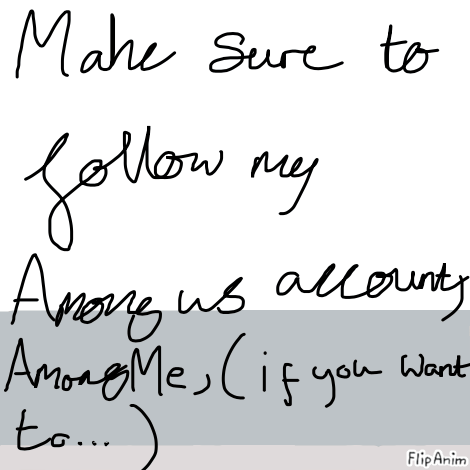 Make sure to
follow my
Among us account,
AmongMe, (if you want
to...)
FlipAnim